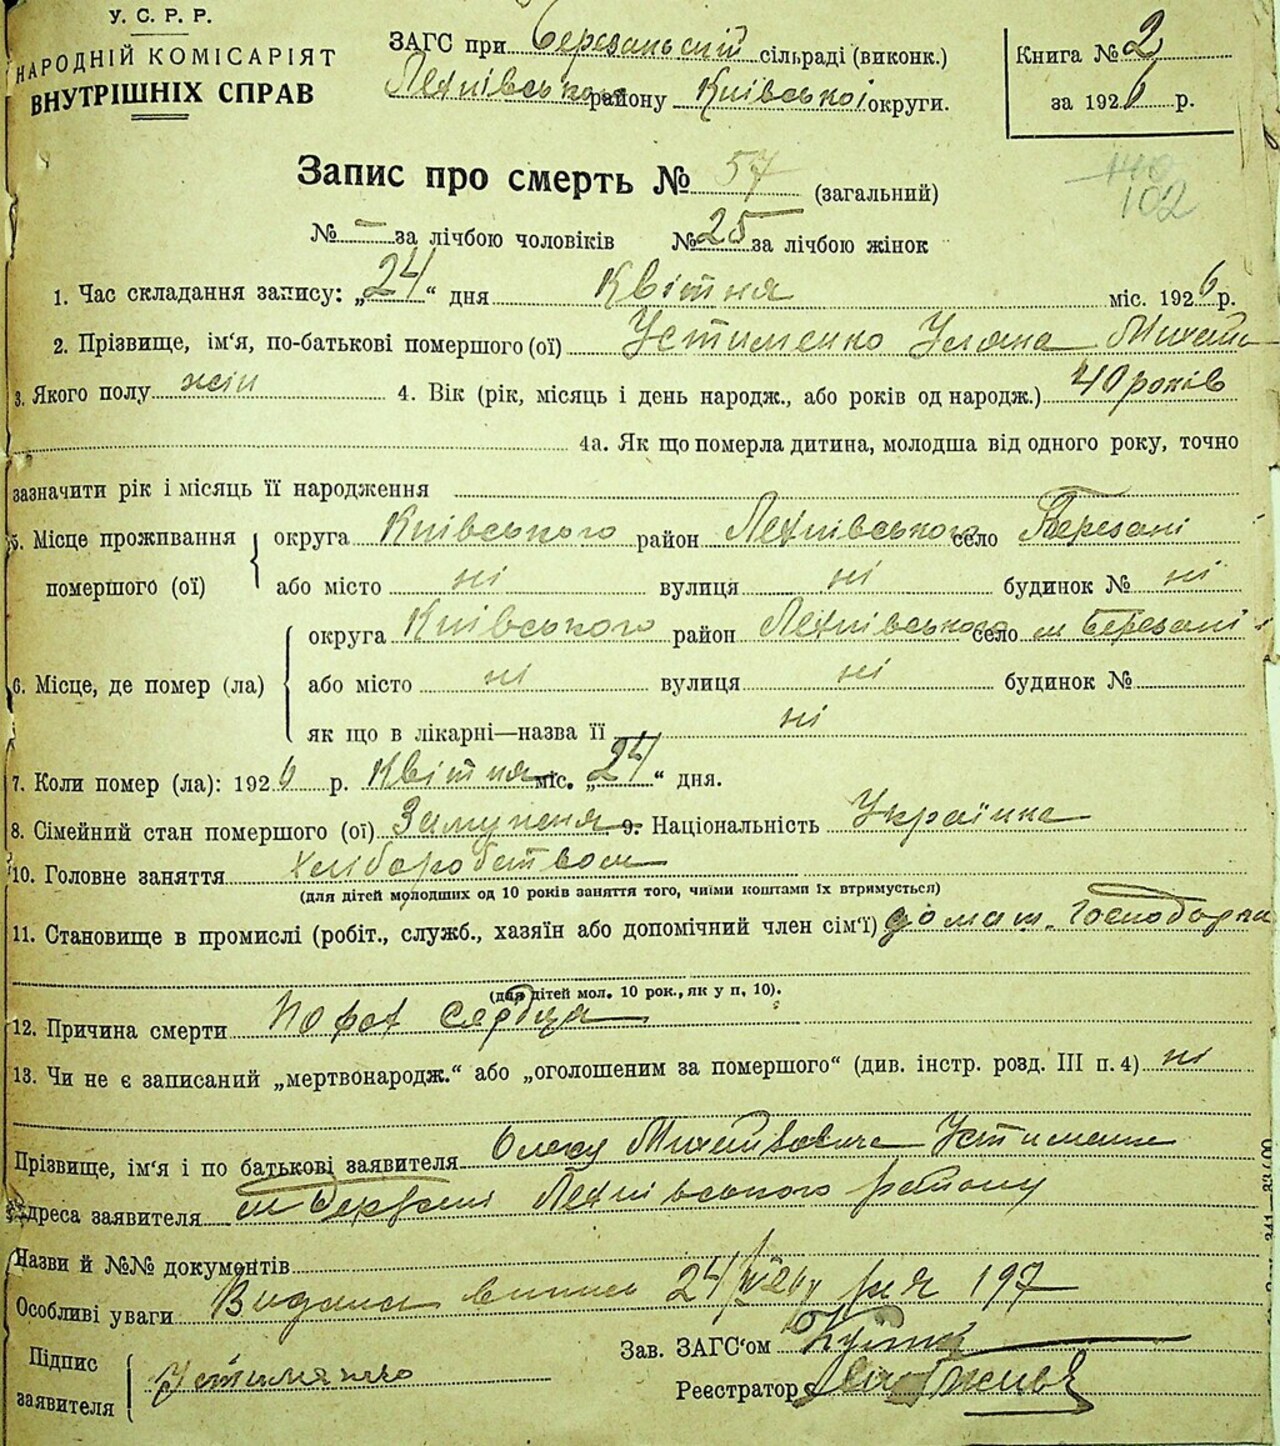 У. С. Р. Р.
НАРОДНІЙ КОМІСАРІЯТ
ВНУТРІШНІХ СПРАВ
ЗАГС при Березанській сільраді (виконк.)
району Київської округи.
Книга № 2
за 1926 р.
Запис про смерть № 57 (загальний)
140
102
№ — за лічбою чоловіків № 25 за лічбою жінок
1. Час складання запису: „24“ дня Квітня міс. 1926 р.
2. Прізвище, ім‘я, по-батькові помершого (ої) Устименко Уляна
3. Якого полу жін 4. Вік (рік, місяць і день народж., або років од народж.) 40 років
4а. Як що померла дитина, молодша від одного року, точно
зазначити рік і місяць її народження
5. Місце проживання помершого (ої) округа Київського район село Березані
або місто ні вулиця ні будинок № ні
6. Місце, де помер (ла) округа Київського район село м Березані
або місто ні вулиця ні будинок №
як що в лікарні—назва її ні
7. Коли помер (ла): 1926 р. Квітня міс. „24“ дня.
8. Сімейний стан помершого (ої) 9. Національність Українка
10. Головне заняття хліборобством
(для дітей молодших од 10 років заняття того, чиїми коштами їх втримується)
11. Становище в промислі (робіт., служб., хазяїн або допомічний член сім‘ї) домаш. Господарка
(для дітей мол. 10 рок., як у п. 10).
12. Причина смерти Порок Сердця
13. Чи не є записаний „мертвонародж.“ або „оголошеним за помершого“ (див. інстр. розд. III п. 4) ні
Прізвище, ім‘я і по батькові заявителя Устименко
Адреса заявителя м Березані району
Назви й №№ документів
Особливі уваги 24/ 197
Підпис заявителя Устименко
Зав. ЗАГС‘ом
Реестратор